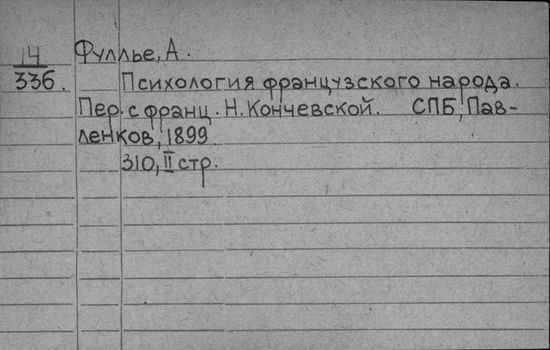 14 Фуллье, А.
336. Психология французского народа.
Пер. с франц. Н. Кончевской. СПБ, Пав-
ленков, 1899
310, II стр.